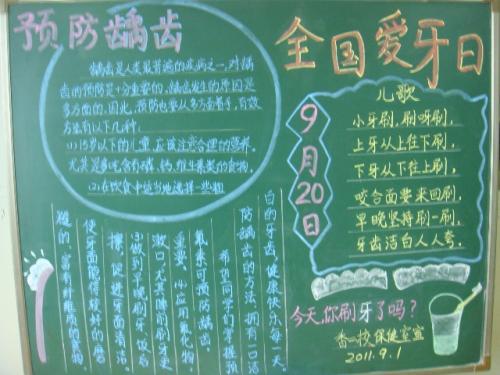 预防龋齿
龋齿是人类最普遍的疾病之一,对龋
齿的预防是十分重要的,龋齿发生的原因是
多方面的,因此,预防也要从多方面着手,有效
方法有以下几种:
(1)15岁以下的儿童,应该注意合理的营养。
尤其是多吃含有磷、钙、维生素类的食物。
(2)在饮食中适当地选择一些粗
糙的、富有纤维质的食物,
使牙面能得较好的磨
擦,促进牙面清洁。
(3)做到早晚刷牙、饭后
漱口,尤其睡前刷牙更
重要。(4)应用氟化物,
氟素可预防龋齿。
希望同学们掌握预
防龋齿的方法,拥有一口洁
白的牙齿,健康快乐每一天。
全国爱牙日
9月20日
儿歌
小牙刷,刷呀刷,
上牙从上往下刷,
下牙从下往上刷,
咬合面要来回刷,
早晚坚持刷一刷,
牙齿洁白人人夸。
今天,你刷牙了吗?
香一校保健室宣
2011.9.1